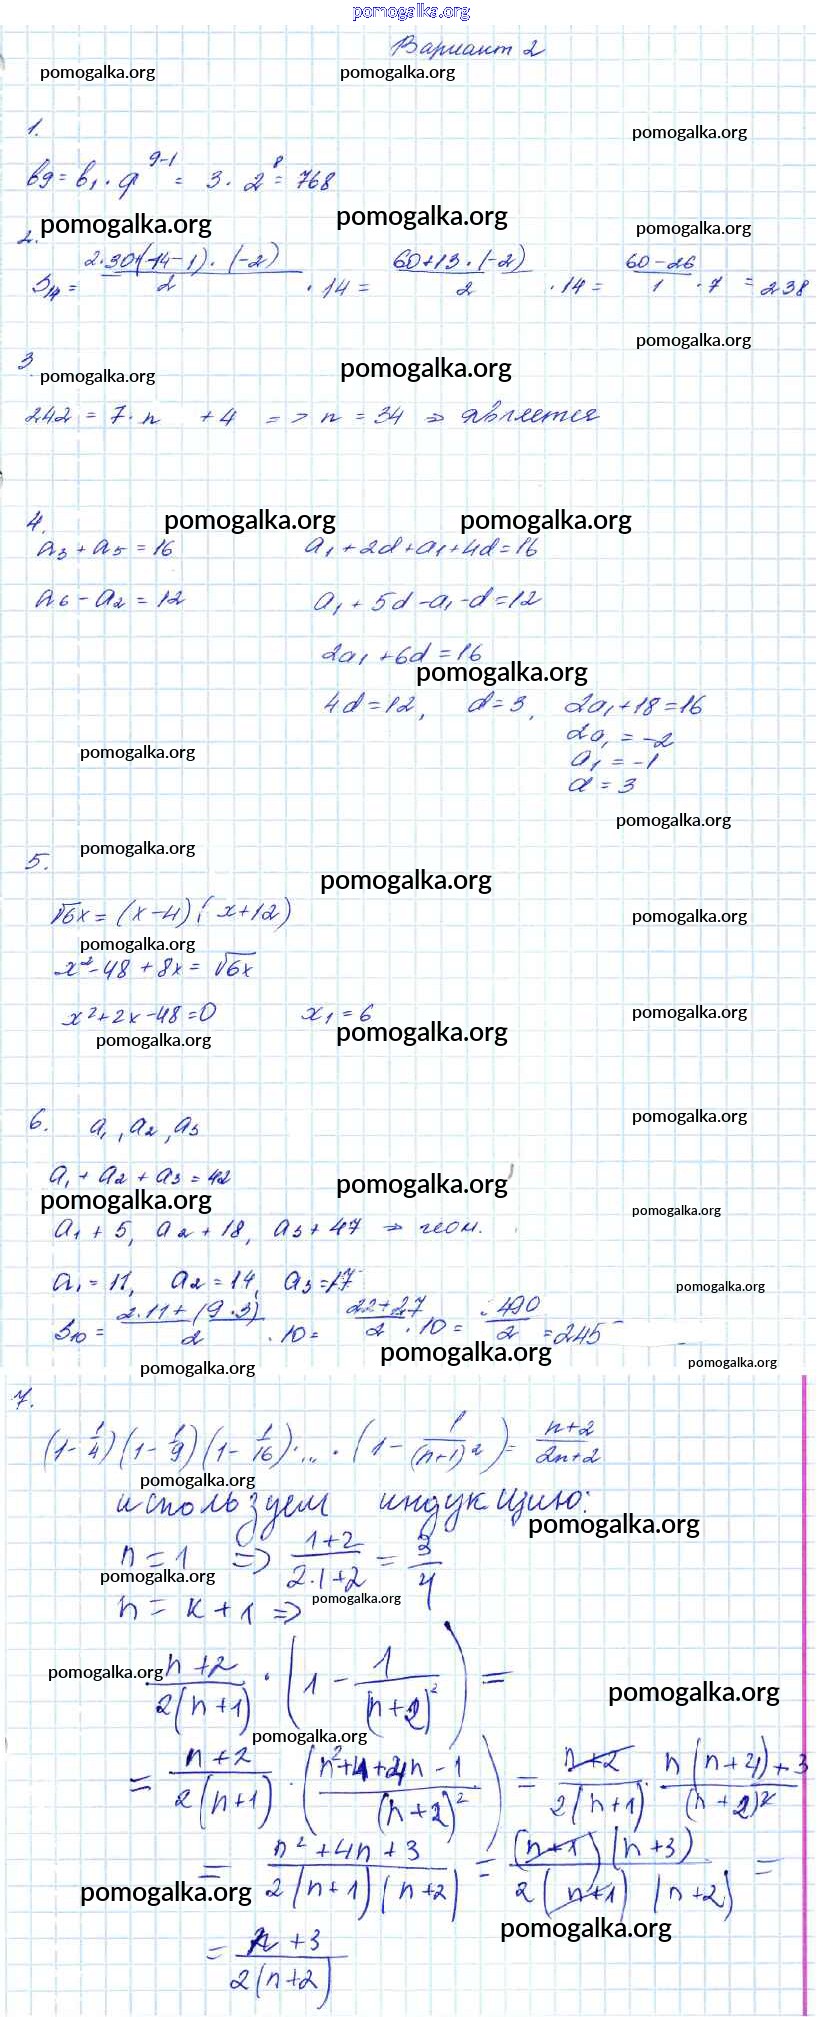 pomogalka.org
Вариант 2
pomogalka.org pomogalka.org
1.
pomogalka.org
b9 = b1 · q^9-1 = 3 · 2^8 = 768
pomogalka.org pomogalka.org pomogalka.org
2.
S14 = 2·30+(14-1)·(-2) / 2 · 14 = 60+13·(-2) / 2 · 14 = 60-26 / 1 · 7 = 238
pomogalka.org
3
pomogalka.org pomogalka.org
242 = 7·n + 4 => n = 34 => является
4. pomogalka.org pomogalka.org
a3 + a5 = 16 a1 + 2d + a1 + 4d = 16
a6 - a2 = 12 a1 + 5d - a1 - d = 12
2a1 + 6d = 16
pomogalka.org
4d = 12, d = 3, 2a1 + 18 = 16
2a1 = -2
pomogalka.org
a1 = -1
d = 3
pomogalka.org
5. pomogalka.org
pomogalka.org
√6x = (x-4)(x+12)
pomogalka.org
pomogalka.org
x² - 48 + 8x = √6x
x² + 2x - 48 = 0 x1 = 6
pomogalka.org
pomogalka.org pomogalka.org
6. a1, a2, a3
pomogalka.org
a1 + a2 + a3 = 42
pomogalka.org pomogalka.org
pomogalka.org
a1 + 5, a2 + 18, a3 + 47 => геом.
a1 = 11, a2 = 14, a3 = 17
pomogalka.org
S10 = 2·11+(9·3) / 2 · 10 = 22+27 / 2 · 10 = 490 / 2 = 245
pomogalka.org pomogalka.org pomogalka.org
7.
(1 - 1/4)(1 - 1/9)(1 - 1/16)·...·(1 - 1/(n+1)²) = n+2 / 2n+2
pomogalka.org
используем индукцию:
pomogalka.org
n = 1 => 1+2 / 2·1+2 = 3/4
pomogalka.org
n = k + 1 =>
pomogalka.org
pomogalka.org
n+2 / 2(n+1) · (1 - 1/(n+2)²) =
pomogalka.org
pomogalka.org
= n+2 / 2(n+1) · (n²+4+4n-1 / (n+2)²) = n+2 / 2(n+1) · n(n+4)+3 / (n+2)²
= n²+4n+3 / 2(n+1)(n+2) = (n+1)(n+3) / 2(n+1)(n+2) =
pomogalka.org
pomogalka.org
= n+3 / 2(n+2)